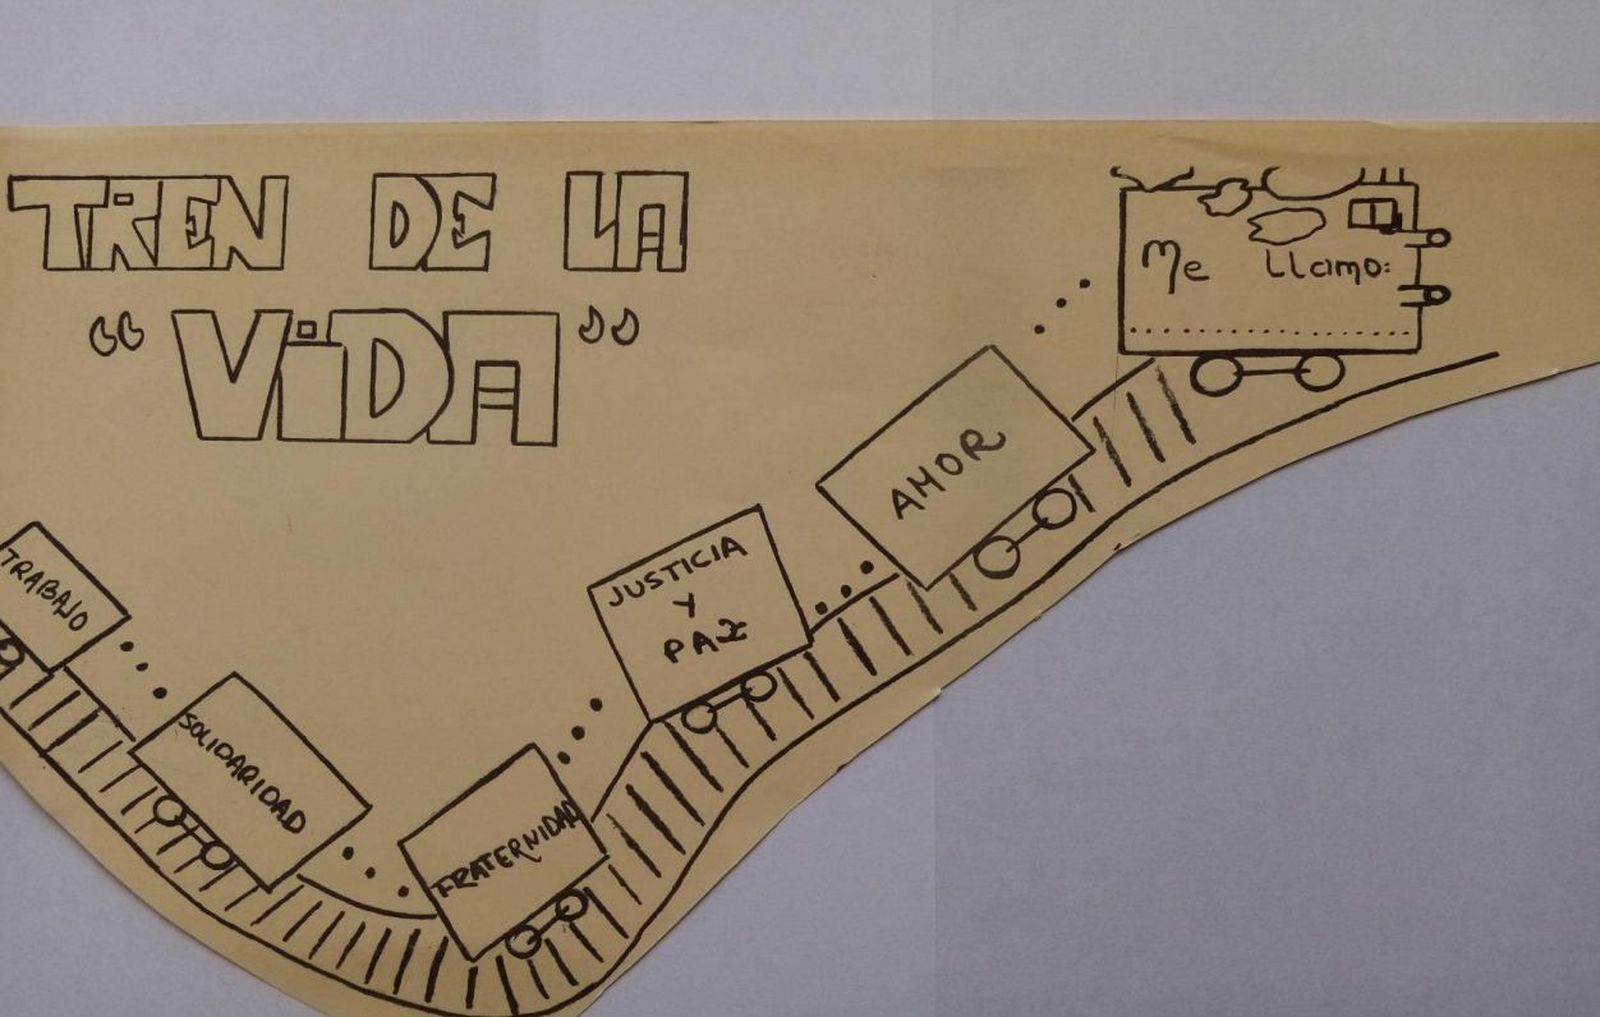 TREN DE LA
"VIDA"
Me LLamo:
AMOR
JUSTICIA
Y
PAZ
FRATERNIDAD
SOLIDARIDAD
TRABAJO